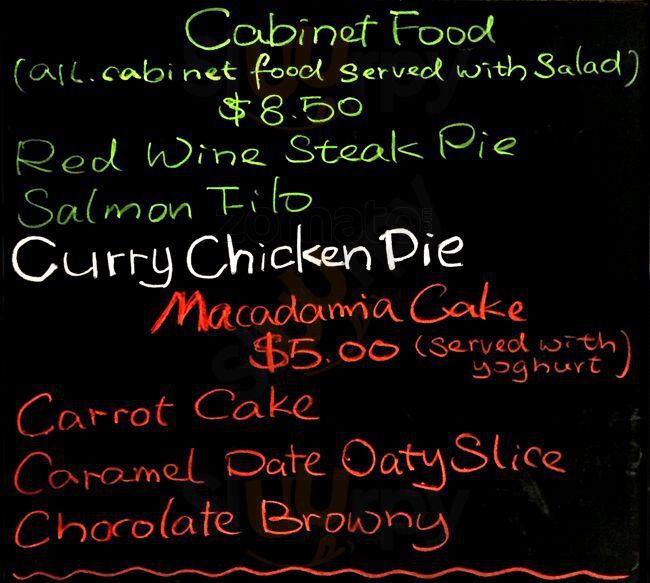 Cabinet Food
(All. cabinet food served with Salad)
$8.50
Red Wine Steak Pie
Salmon Filo
Curry Chicken Pie
Macadamia Cake
$5.00 (served with yoghurt)
Carrot Cake
Caramel Date Oaty Slice
Chocolate Browny